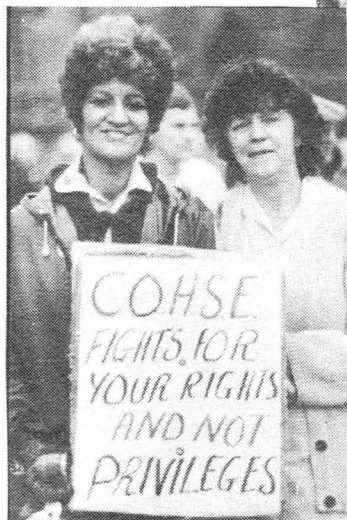 C.O.H.S.E.
FIGHTS FOR
YOUR RIGHTS
AND NOT
PRIVILEGES